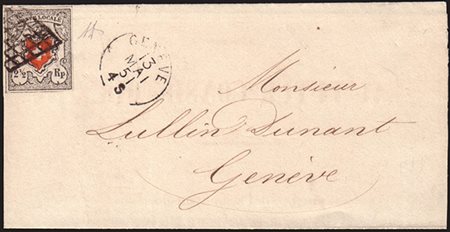 POSTE LOCALE
2½ Rp.
GENÈVE
13
MAI
51
4 S
Monsieur
Lullin Dunant
Genève